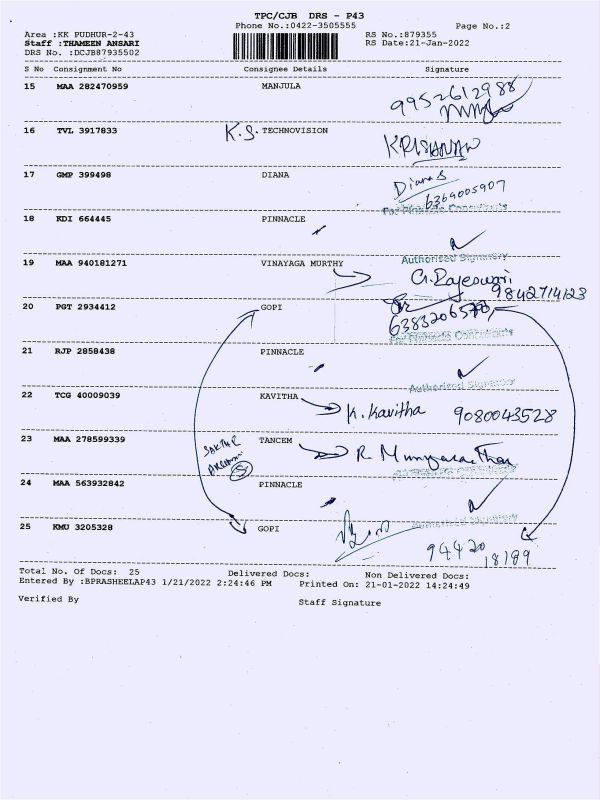 TPC/CJB DRS - P43
Phone No.:0422-3505555 Page No.:2
Area :KK PUDHUR-2-43 RS No.:879355
Staff :THAMEEN ANSARI RS Date:21-Jan-2022
DRS No. :DCJB87935502
S No Consignment No Consignee Details Signature
15 MAA 282470959 MANJULA 9952612988
16 TVL 3917833 K.S. TECHNOVISION KRISHNAN
17 GMP 399498 DIANA Diana S
6369005907
18 KDI 664445 PINNACLE
Authorised Signatory
19 MAA 940181271 VINAYAGA MURTHY G. Rajeswari
9842714123
20 PGT 2934412 GOPI
21 RJP 2858438 PINNACLE
Authorised Signatory
22 TCG 40009039 KAVITHA K. Kavitha 9080043528
23 MAA 278599339 TANCEM
24 MAA 563932842 PINNACLE
Authorised Signatory
25 KMU 3205328 GOPI 94420
18189
Total No. Of Docs: 25 Delivered Docs: Non Delivered Docs:
Entered By :BPRASHEELAP43 1/21/2022 2:24:46 PM Printed On: 21-01-2022 14:24:49
Verified By Staff Signature